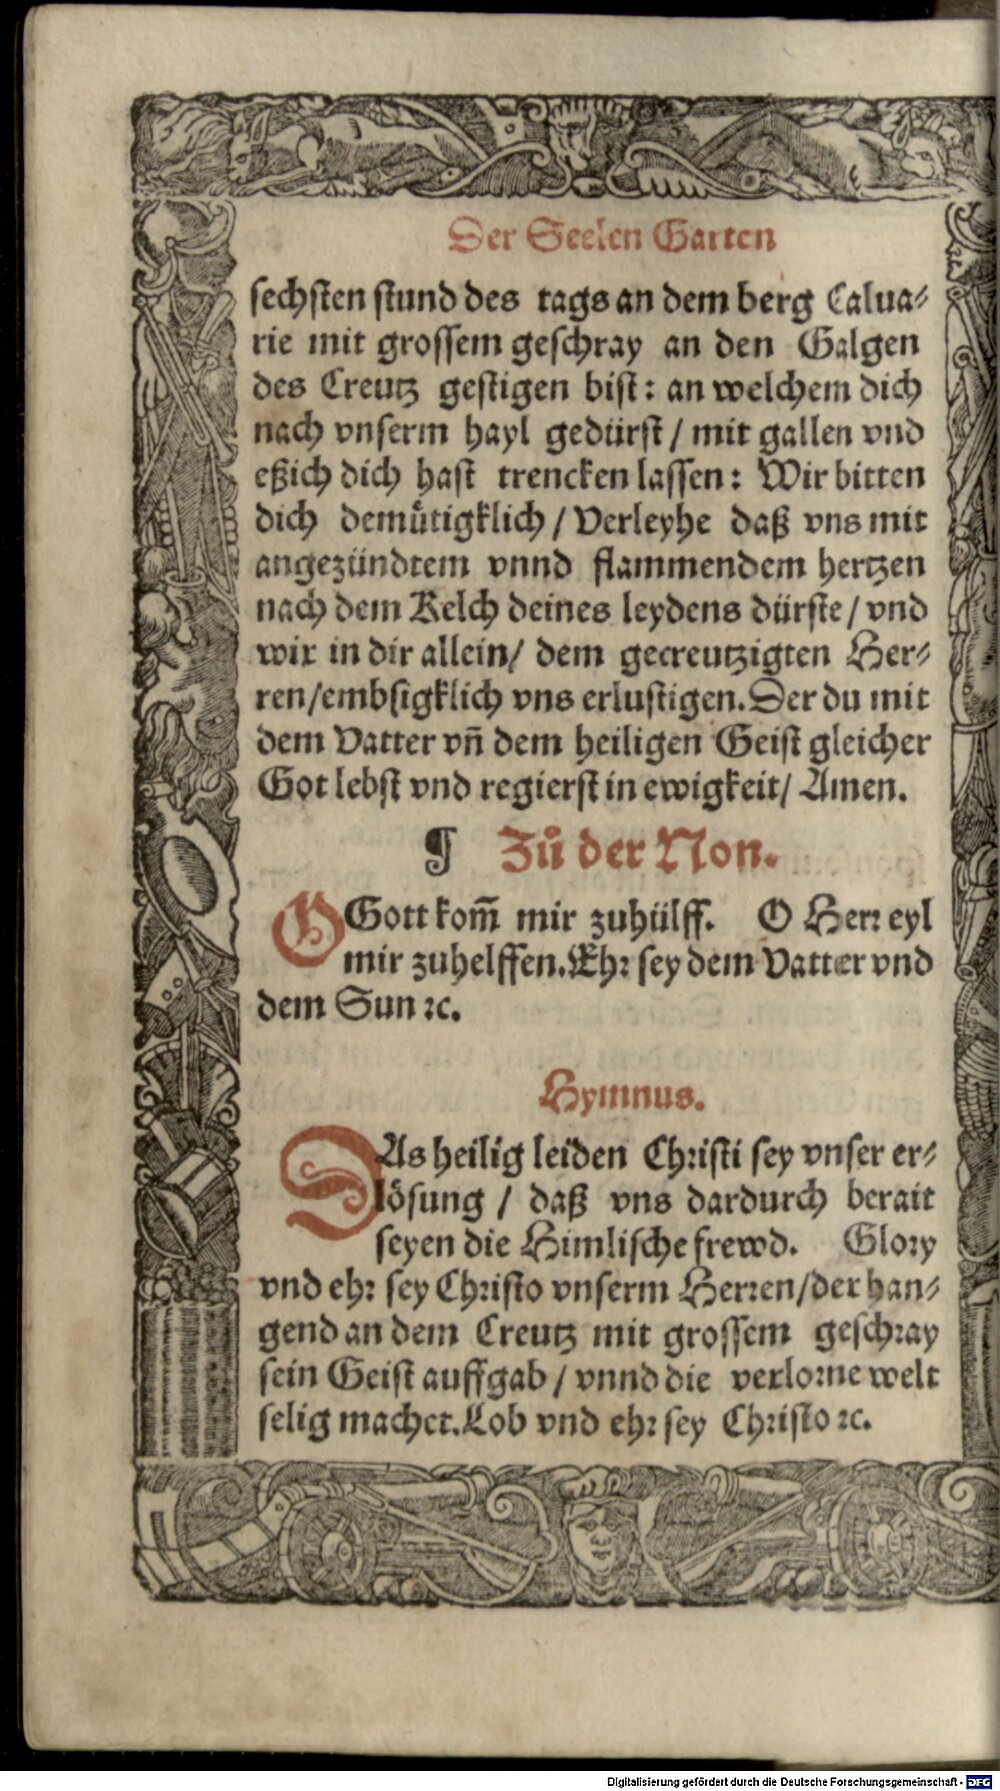 Der Seelen Garten
sechsten stund des tags an dem berg Calua⸗
rie mit grossem geschray an den Galgen
des Creutz gestigen bist: an welchem dich
nach vnserm hayl gedürst / mit gallen vnd
eßich dich hast trencken lassen: Wir bitten
dich demuͤtigklich / Verleyhe daß vns mit
angezündtem vnnd flammendem hertzen
nach dem Kelch deines leydens dürste / vnd
wir in dir allein / dem gecreutzigten Her⸗
ren / embsigklich vns erlustigen. Der du mit
dem Vatter vñ dem heiligen Geist gleicher
Got lebst vnd regierst in ewigkeit / Amen.
¶ Zů der Non.
O Gott kom̃ mir zuhülff. O Herr eyl
mir zuhelffen. Ehr sey dem Vatter vnd
dem Sun ꝛc.
Hymnus.
DAs heilig leiden Christi sey vnser er⸗
lösung / daß vns dardurch berait
seyen die Himlische frewd. Glory
vnd ehr sey Christo vnserm Herren / der han⸗
gend an dem Creutz mit grossem geschray
sein Geist auffgab / vnnd die verlorne welt
selig machet. Lob vnd ehr sey Christo ꝛc.
Digitalisierung gefördert durch die Deutsche Forschungsgemeinschaft - DFG